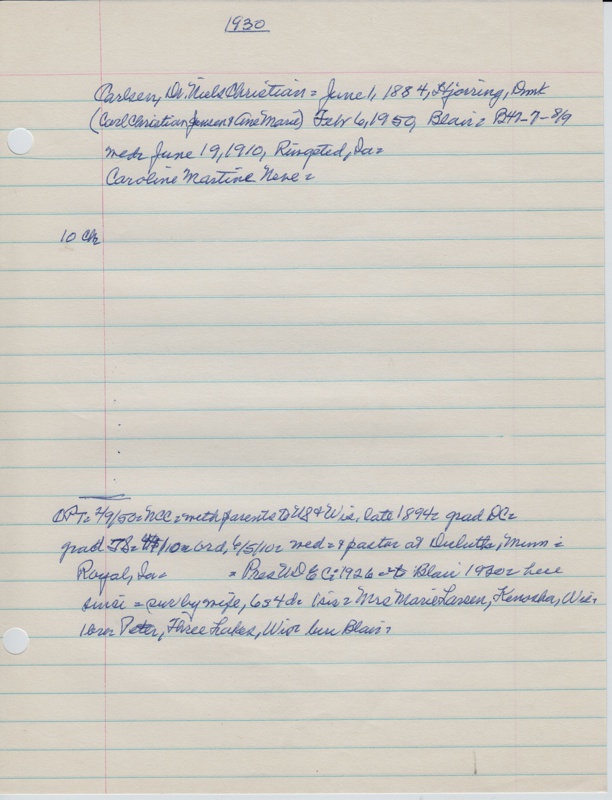 1930
Carlsen, Dr. Niels Christian = June 1, 1884, Hjorring, Dmk
(Carl Christian Jensen & Ane Marie) Feb 6, 1950, Blair = B47-7-8/9
med= June 19, 1910, Ringsted, Ia=
Caroline Mastine Nene =
10 Ch
2/9/50= NCC= with parents to US & Wis. late 1894= grad DC=
grad TS= /10= ord, 6/5/10= med= & pastor at Duluth, Minn =
Royal, Ia= = Pres UDELC= 1926 = to Blair 1930= here
since = sur by wife, 6s 4d= 1sis= Mrs Marie Larsen, Kenosha, Wis=
1bro= Peter, Three Lakes, Wis= bur Blair=